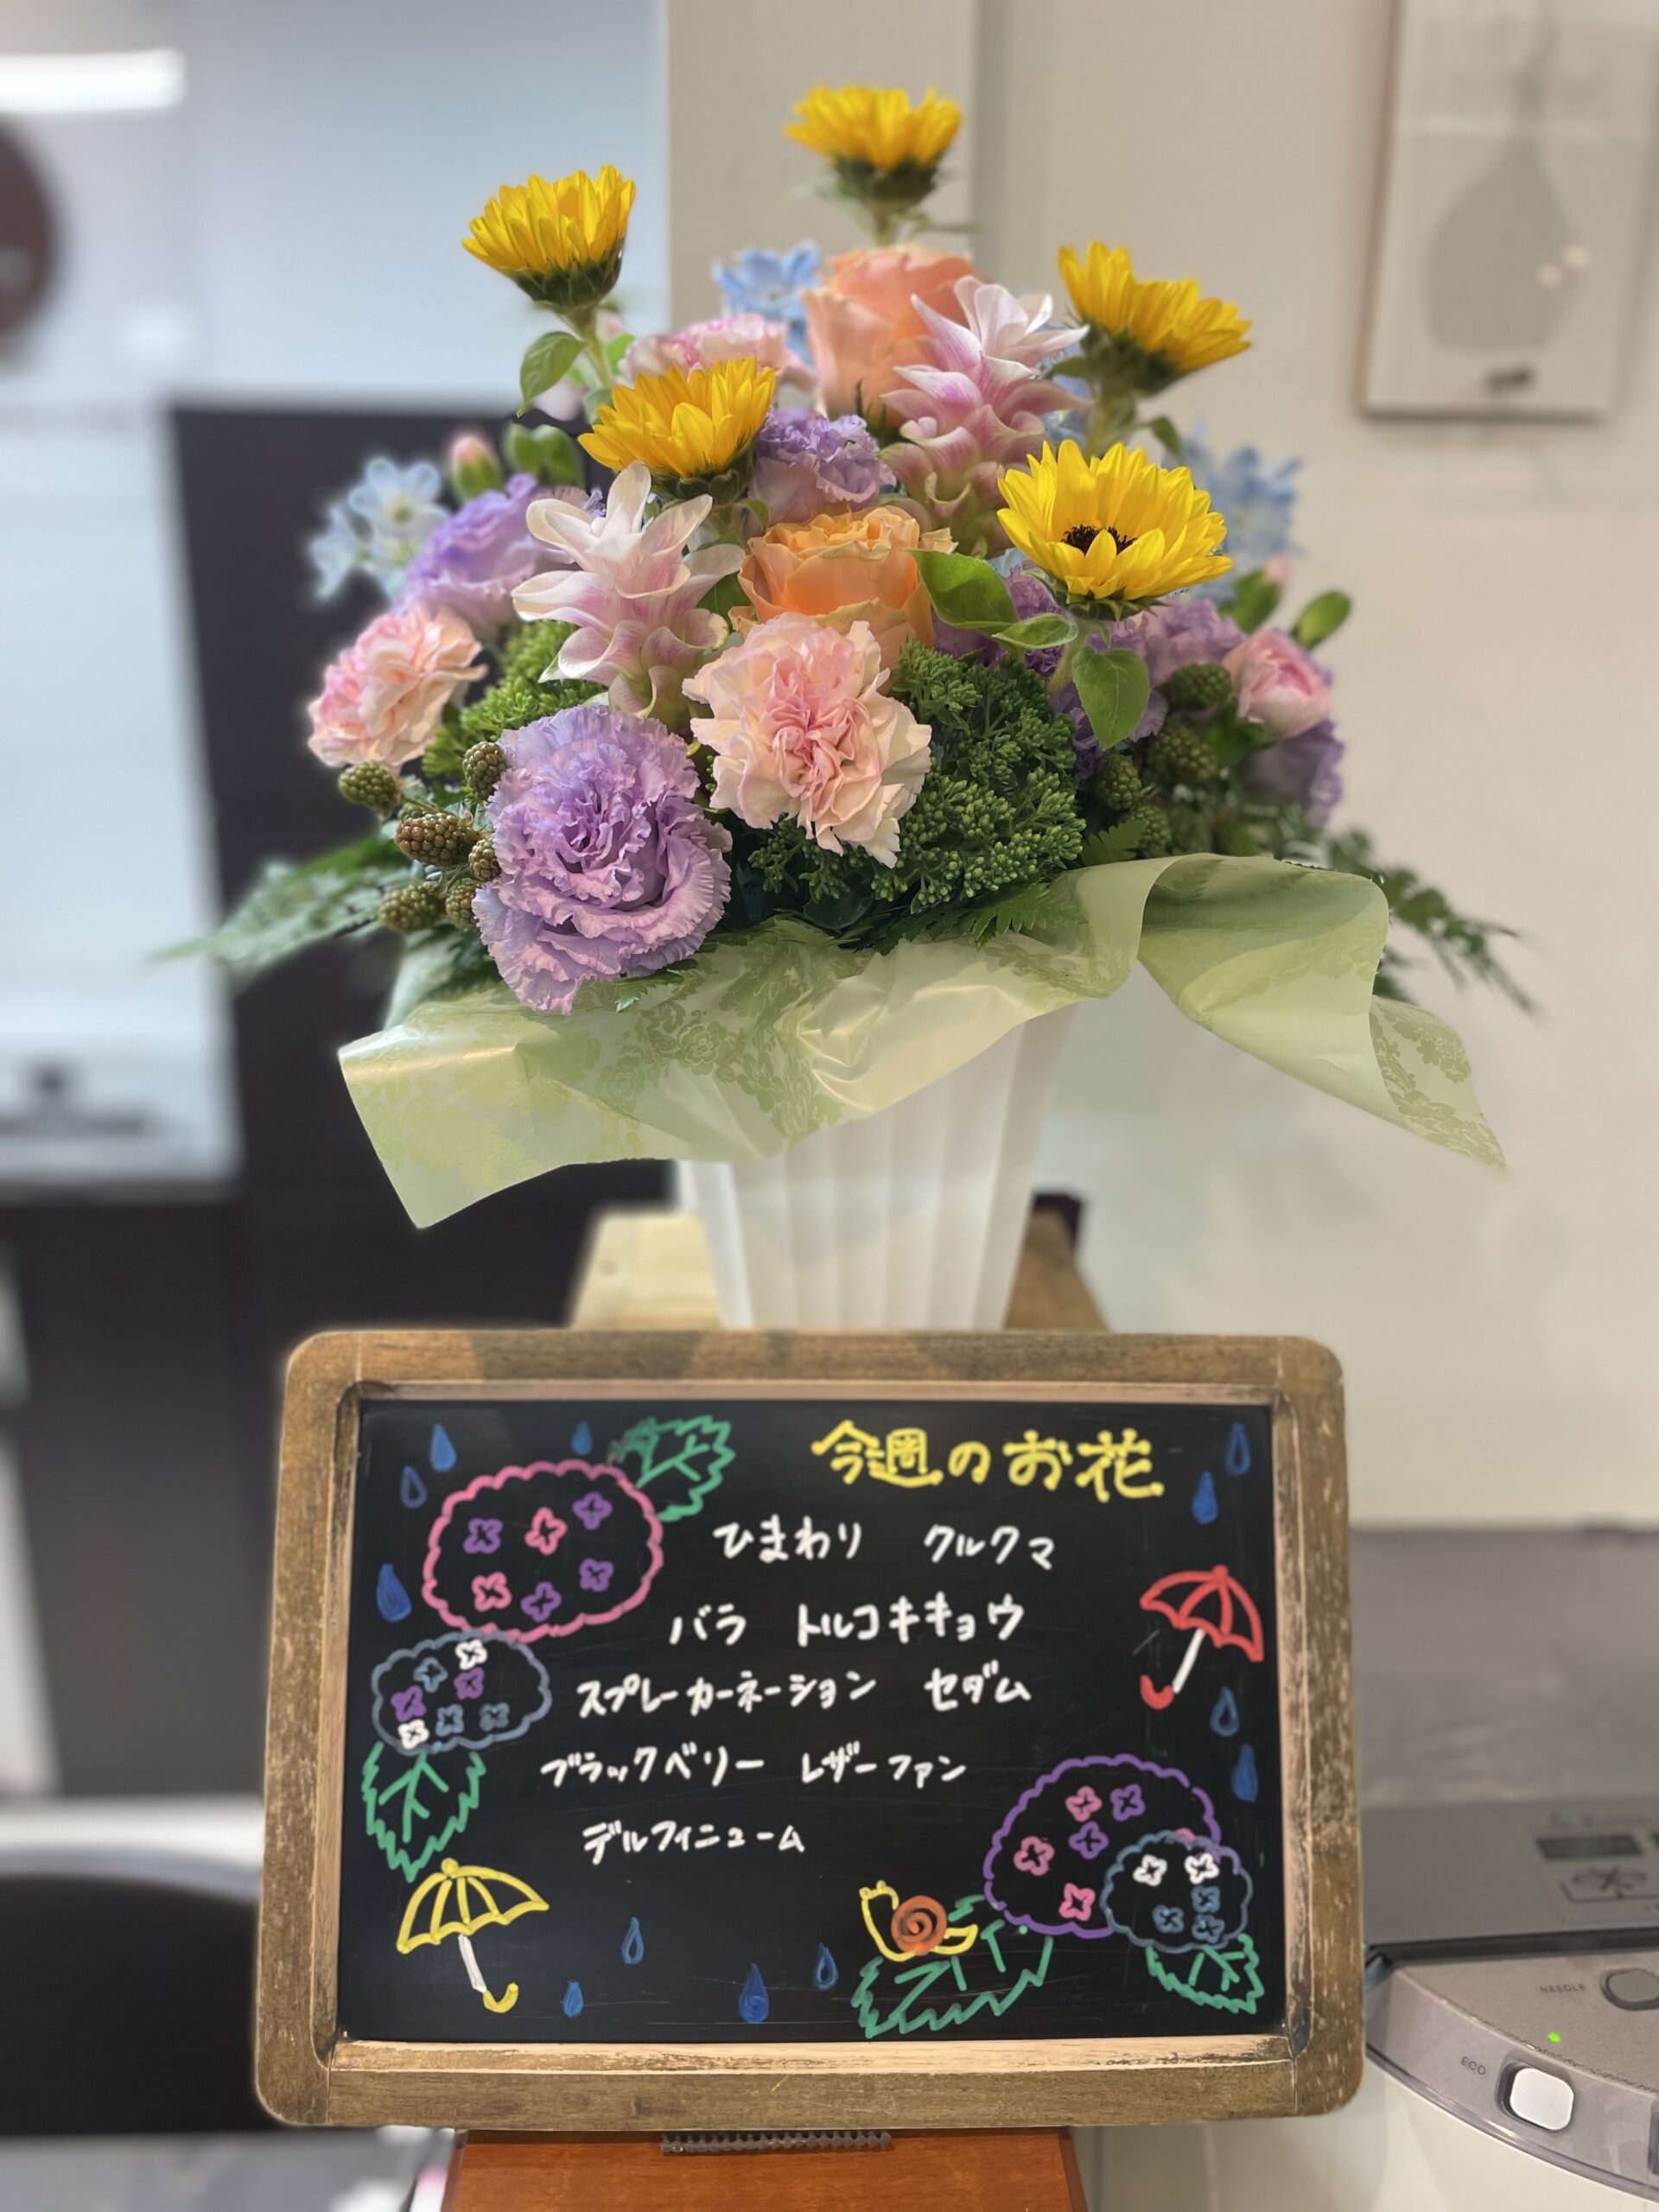 今週のお花
ひまわり クルクマ
バラ トルコキキョウ
スプレーカーネーション セダム
ブラックベリー レザーファン
デルフィニューム
NEEDLE
ECO